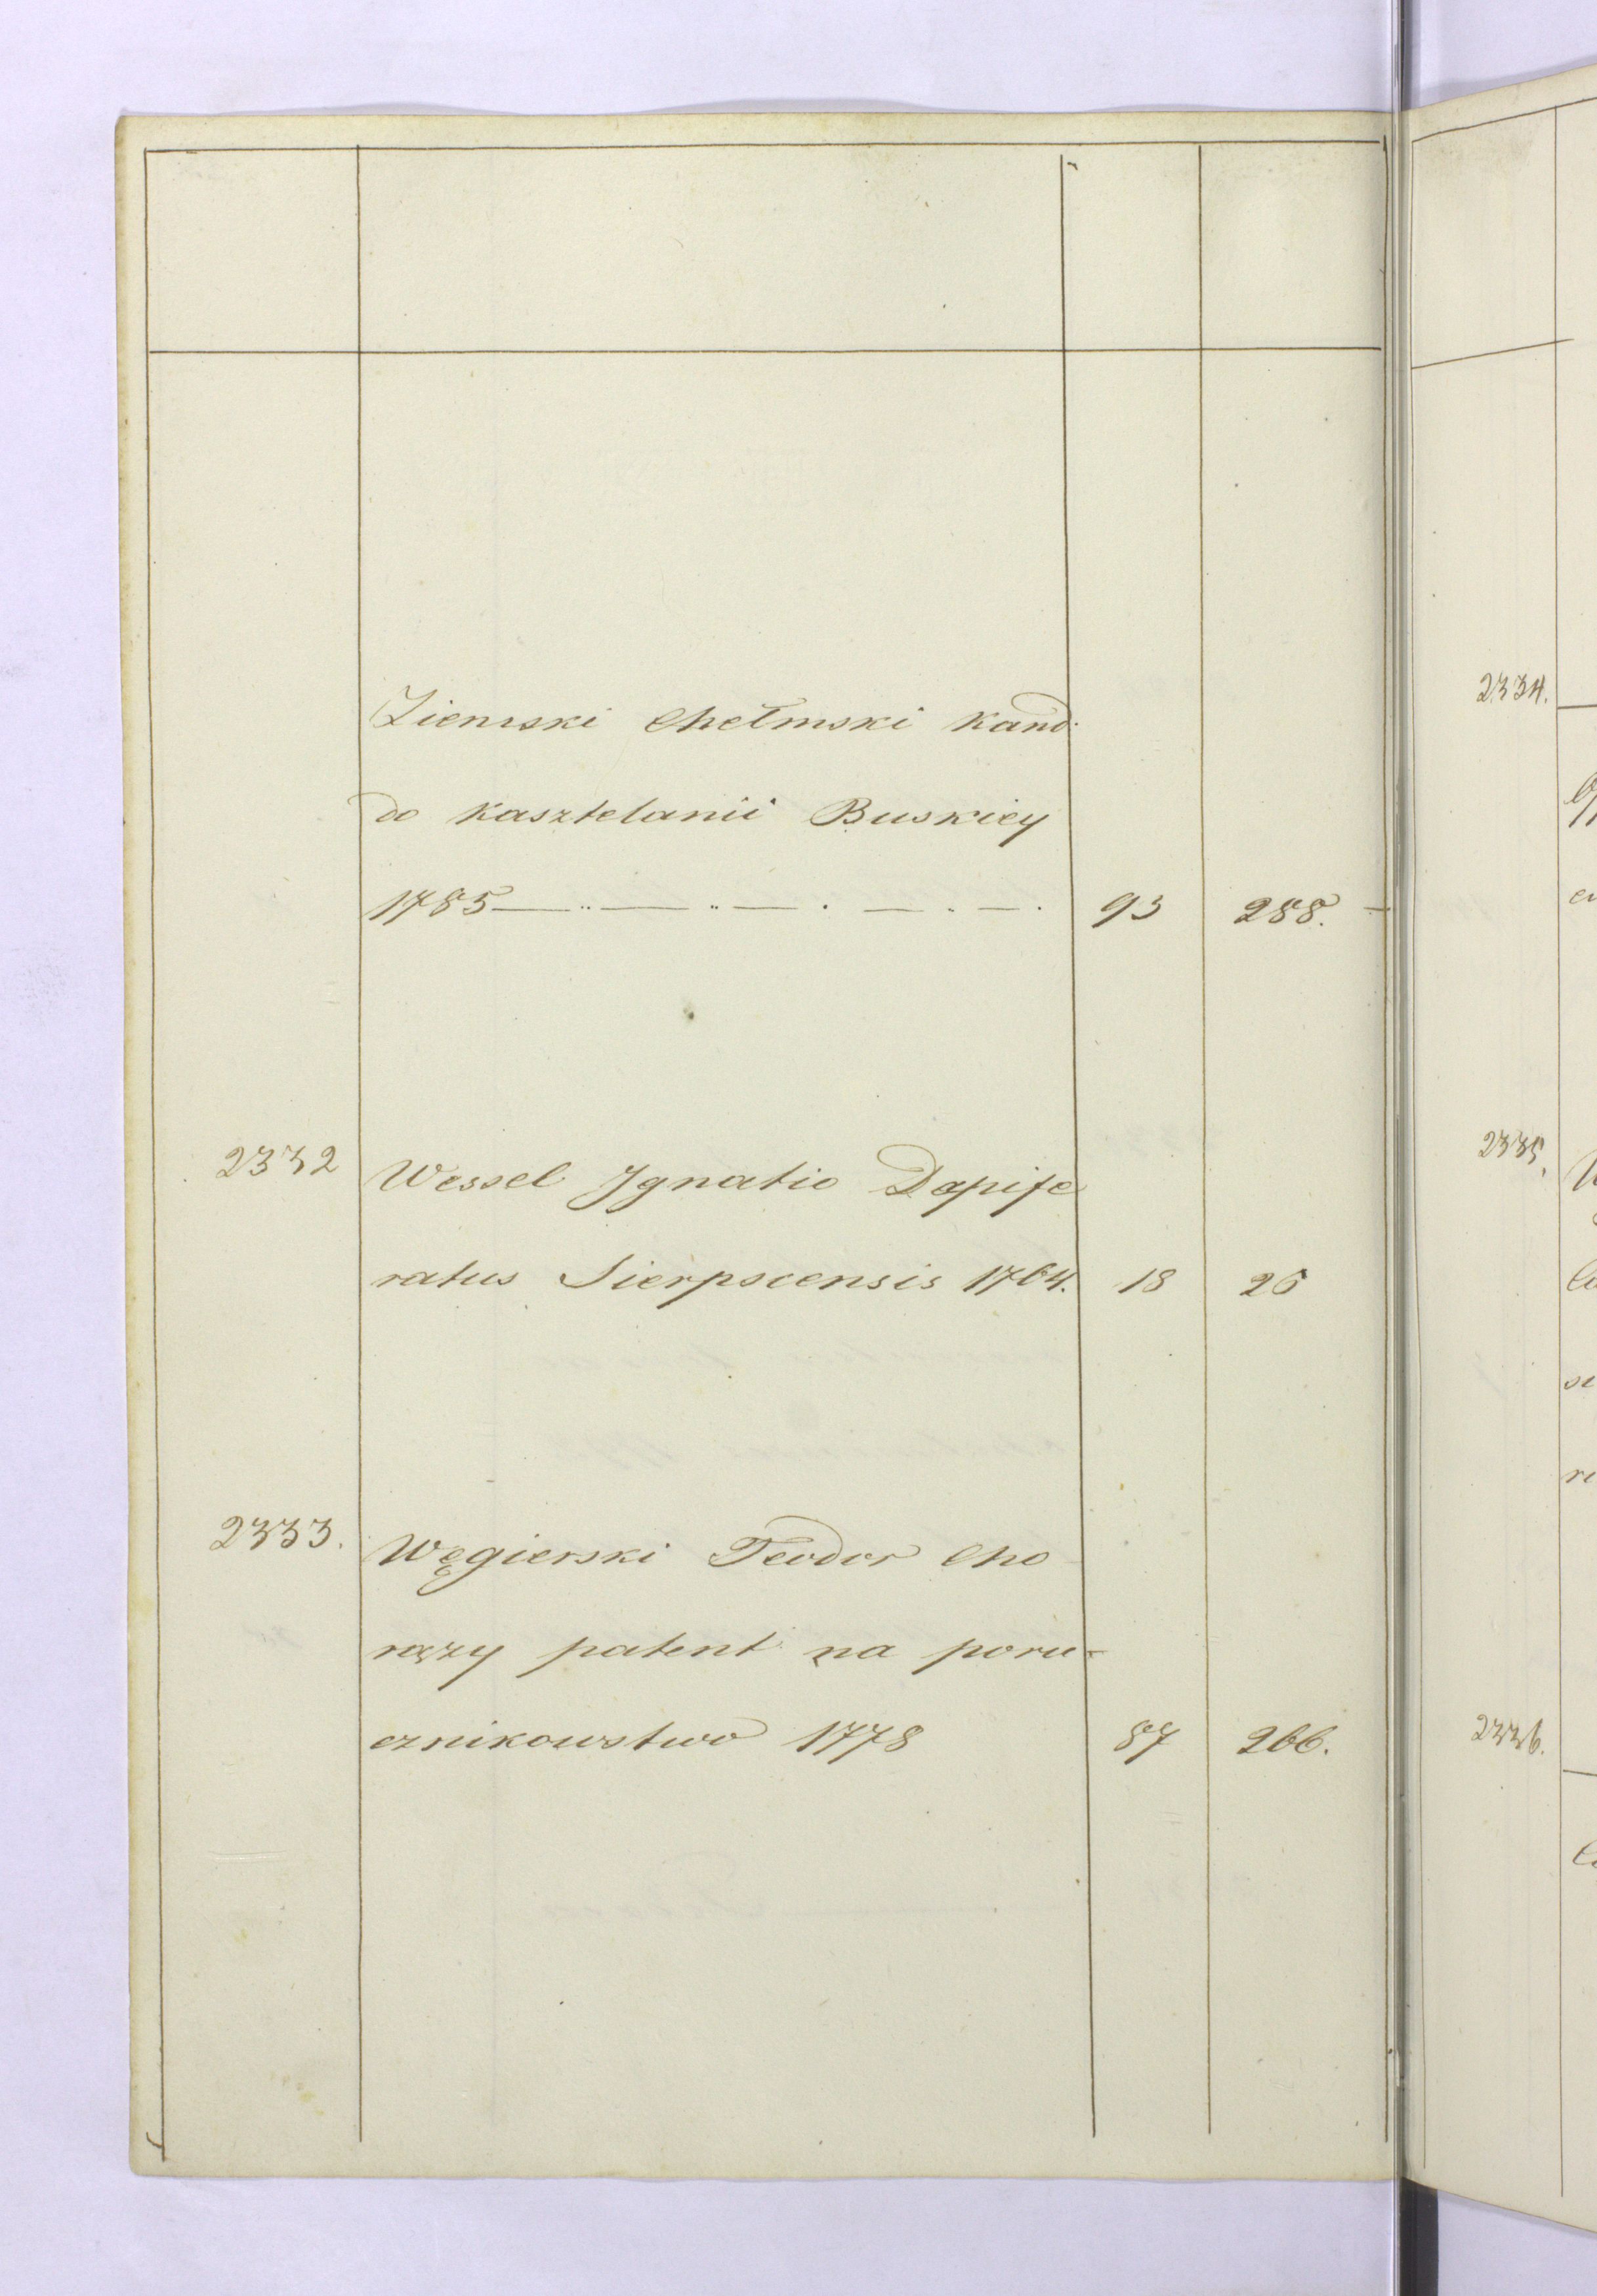 Ziemski Chełmski Kand:
do Kasztelanii Buskiey
1785 — .. — .. — . — . — . 93 288. —
2332 Wessel Ignatio Dapife
ratus Sierpscensis 1764. 18 26
2333. Węgierski Teodor Cho
rąży patent na poru-
cznikowstwo 1778 87 266.
2334.
2335.
2336.